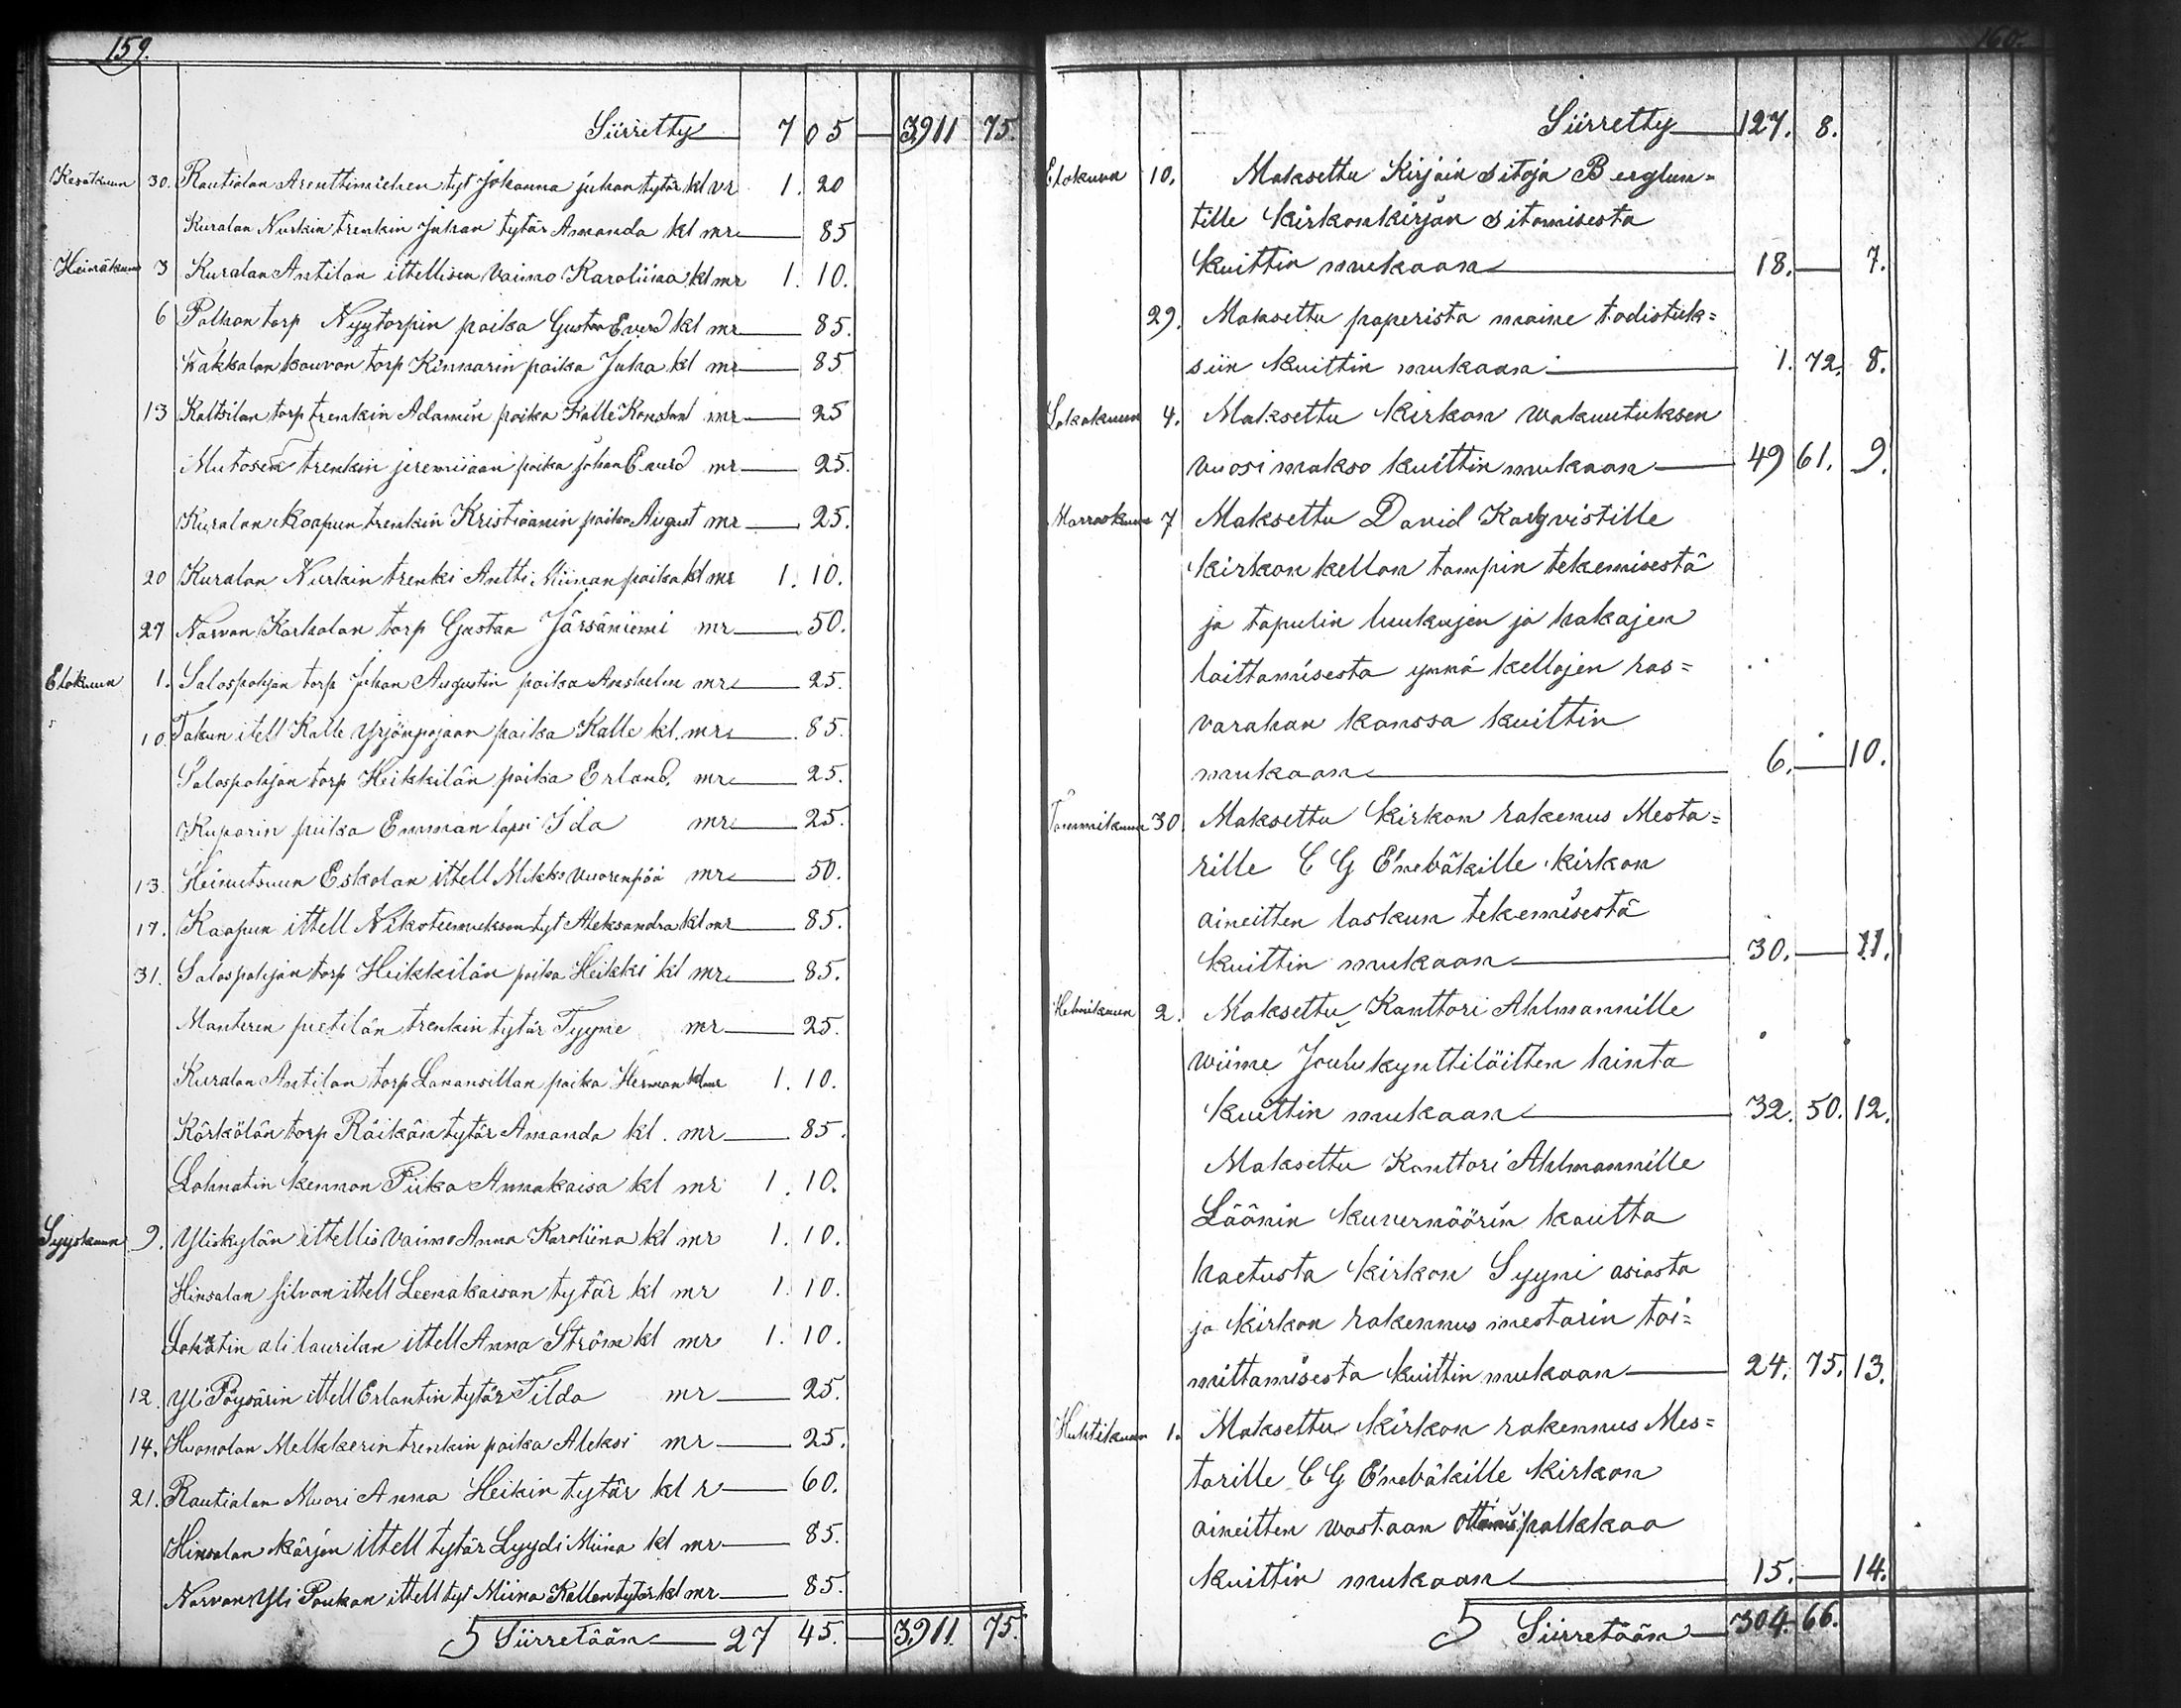 159.
Siirretty 7 05 — 3911 75.
Kesäkuun 30. Rautialan Arenttimiehen tyt Johanna juhan tytär kl vr 1. 20
Kuralan Nurkin trenkin Juhan tytär Amanda kl mr — 85
Heinäkuun 3 Kuralan Antilan ittellisen Vaimo Karoliinaa kl mr 1. 10.
6 Palhon torp Nyytorpin poika Gustaa Everd kl mr — 85.
Kakkalan kouvon torp Kinnarin poika Juha kl mr — 85
13 Kaltsilan torp trenkin Adamin poika Kalle Konstant mr — 25
Mutosen trenkin jeremiiaan poika johan Everd mr — 25.
Kuralan Kaapun trenkin Kristiaanin poika August mr — 25.
20 Kuralan Nurkin trenki Antti Miinan poika kl mr 1. 10.
27 Narvan Karholan torp Gustaa Järsäniemi mr — 50.
Elokuun 1. Salospohjan torp Juhan Augustin poika Anshelm mr — 25.
10. Takun itell Kalle Yrjönpojaan poika Kalle kl. mr — 85.
Salospohjan torp Heikkilän poika Erland. mr — 25.
Kuparin piika Emman lapsi Ida mr — 25.
13. Heinutsuun Eskolan ittell Mikko Vuorenpää mr — 50.
17. Kaapun ittell Nikoteemuksen tyt Aleksandra kl mr — 85.
31. Salospohjan torp Heikkilän poika Heikki kl mr — 85.
Manteren pietilän trenkin tytär Tyyne mr — 25.
Kuralan Antilan torp Lanansillan poika Herman kl mr 1. 10.
Körkölän torp Räikän tytär Amanda kl. mr — 85.
Lahnatin kennon Piika Annakaisa kl mr 1. 10.
Syyskuun 9. Yliskylän ittellis Vaimo Anna Karoliina kl mr 1. 10.
Hinsalan silvan ittell Leenakaisan tytär kl mr 1. 10.
ali laurilan ittell Anna Ström kl mr 1. 10.
12. Yli Pöysärin ittell Erlantin tytär Tilda mr — 25.
14. Huonolan Melkkerin trenkin poika Aleksi mr — 25.
21. Rautialan Muori Anna Heikin tytär kl r — 60.
Hinsalan kärjen ittell tytär Lyydi Miina kl mr — 85.
Narvan Yli Paukan ittell tyt Miina Kallentytär kl mr — 85.
Siirretään — 27 45. — 3911. 75.
160.
Siirretty 127. 8.
Elokuun 10. Maksettu Kirjain sitoja Berglun=
tille Kirkonkirjan sitomisesta
Kuittin mukaan — 18. — 7.
29. Maksettu paperista maine todistuk=
siin kuittin mukaan — 1. 72. 8.
Lokakuun 4. Maksettu Kirkon wakuutuksen
vuosi makso kuittin mukaan — 49 61. 9.
Marraskuun 7 Maksettu David Karlqvistille
kirkon kellon tampin tekemisestä
ja tapulin luukujen ja hakajen
laittamisesta ynnä kellojen ras=
varahan kanssa kuittin
mukaan — 6. — 10.
Tammikuun 30. Maksettu Kirkon rakenus Mesta=
rille C G Enebäkille kirkon
aineitten laskun tekemisestä
kuittin mukaan — 30. — 11.
Helmikuun 2. Maksettu Kanttori Ahlmannille
wiime Joulukynttilöitten hinta
Kuittin mukaan — 32. 50. 12.
Maksettu Kanttori Ahlmannille
Läänin kuvernöörin kautta
haetusta kirkon Syyni asiasta
ja kirkon rakennus mestarin toi=
mittamisesta kuittin mukaan — 24. 75. 13.
Huhtikuun 1. Maksettu kirkon rakennus Mes=
tarille C G Enebäkille kirkon
aineitten wastaan ottamis palkkaa
kuittin mukaan — 15. — 14.
Siirretään — 304. 66.